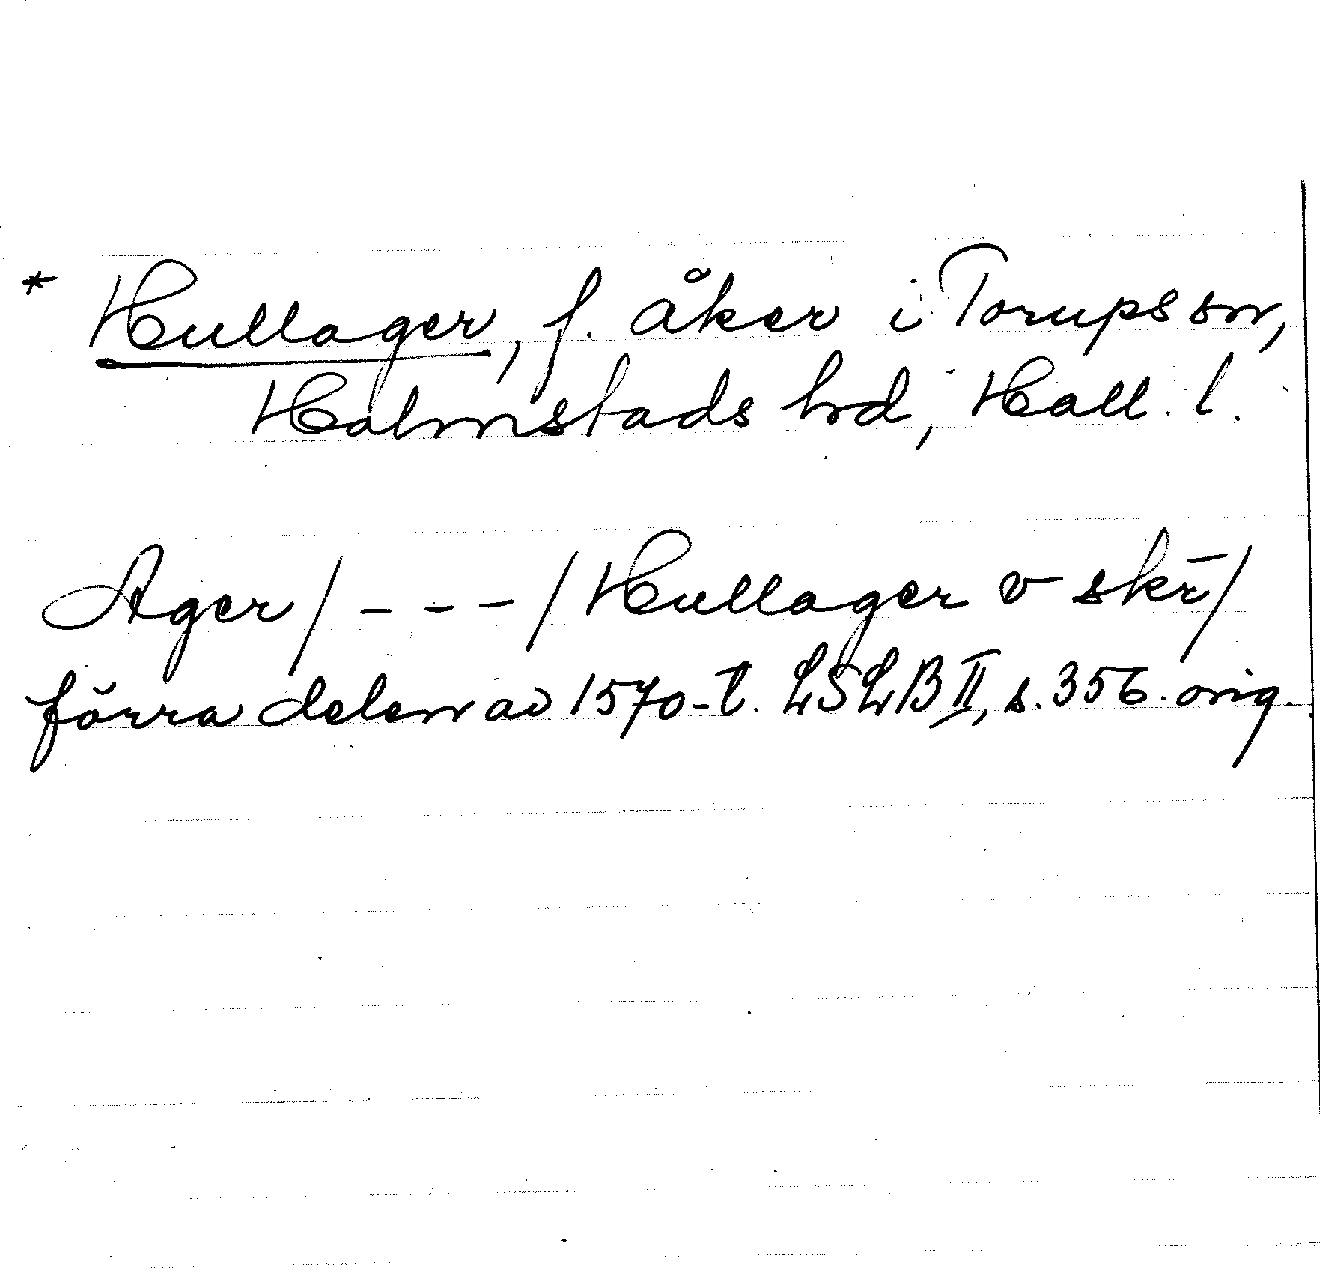 * Hullager, f. åker i Torups sn,
Halmstads hd, Hall. l.
Ager / - - - / Hullager v skr̄ /
förra delen av 1570-t. LSLB II, s. 356. orig.